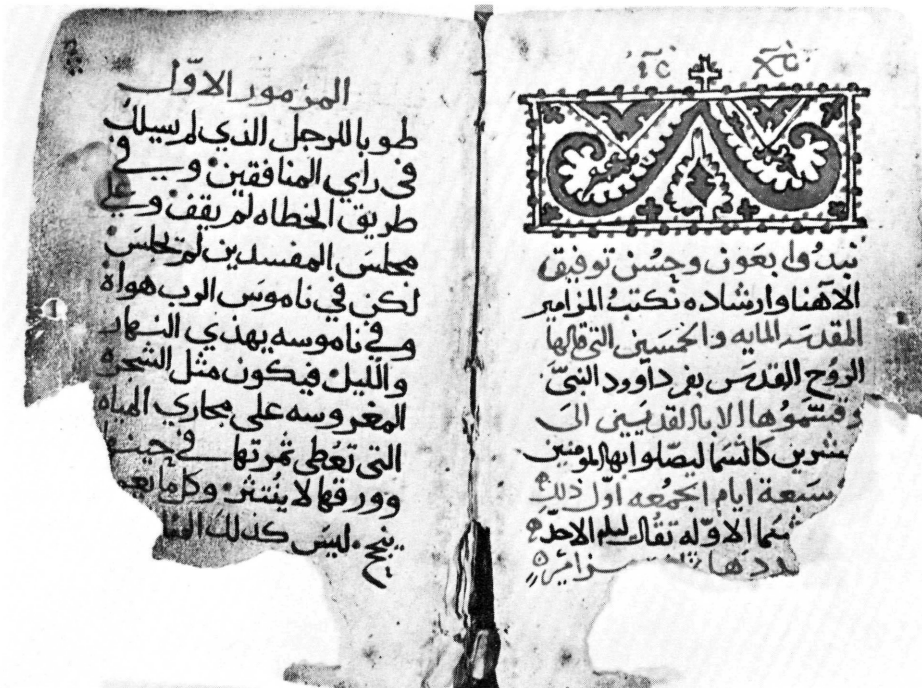 ⲓ̅ⲥ̅ ⲭ̅ⲥ̅
نبدوا بعون وحسن توفيق
الاهنا وارشاده نكتب المزامير
المقدسه المايه والخمسين التي قالها
الروح القدس بفم داوود النبي
وقسموها الابا القديسين الى
عشرين كاتسما ليصلوا بها المومنين
سبعة ايام الجمعه اول ذلك
الاوله تقال ليلة الاحد
المزمور الاول
طوبا للرجل الذي لم يسلك
في راي المنافقين وفي
طريق الخطاه لم يقف وعلي
مجلس المفسدين لم يجلس
لكن في ناموس الرب هواه
وفي ناموسه يهذي النهار
والليل فيكون مثل الشجره
المغروسه على مجاري المياه
التي تعطي ثمرتها في حينها
وورقها لا ينتثر وكل ما
ينجح ليس كذلك